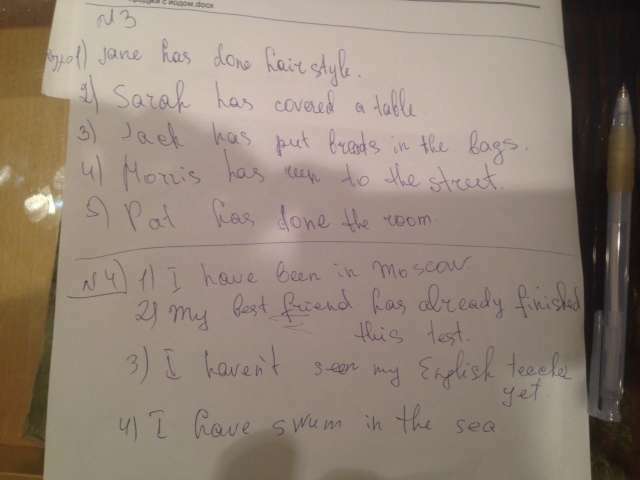 с йодом.docx
N3
1) Jane has done hair style.
2) Sarah has covered a table
3) Jack has put breads in the bags.
4) Morris has run to the street.
5) Pat has done the room.
N4) 1) I have been in Moscow.
2) My best friend has already finished
this test.
3) I haven't seen my English teacher
yet.
4) I have swum in the sea